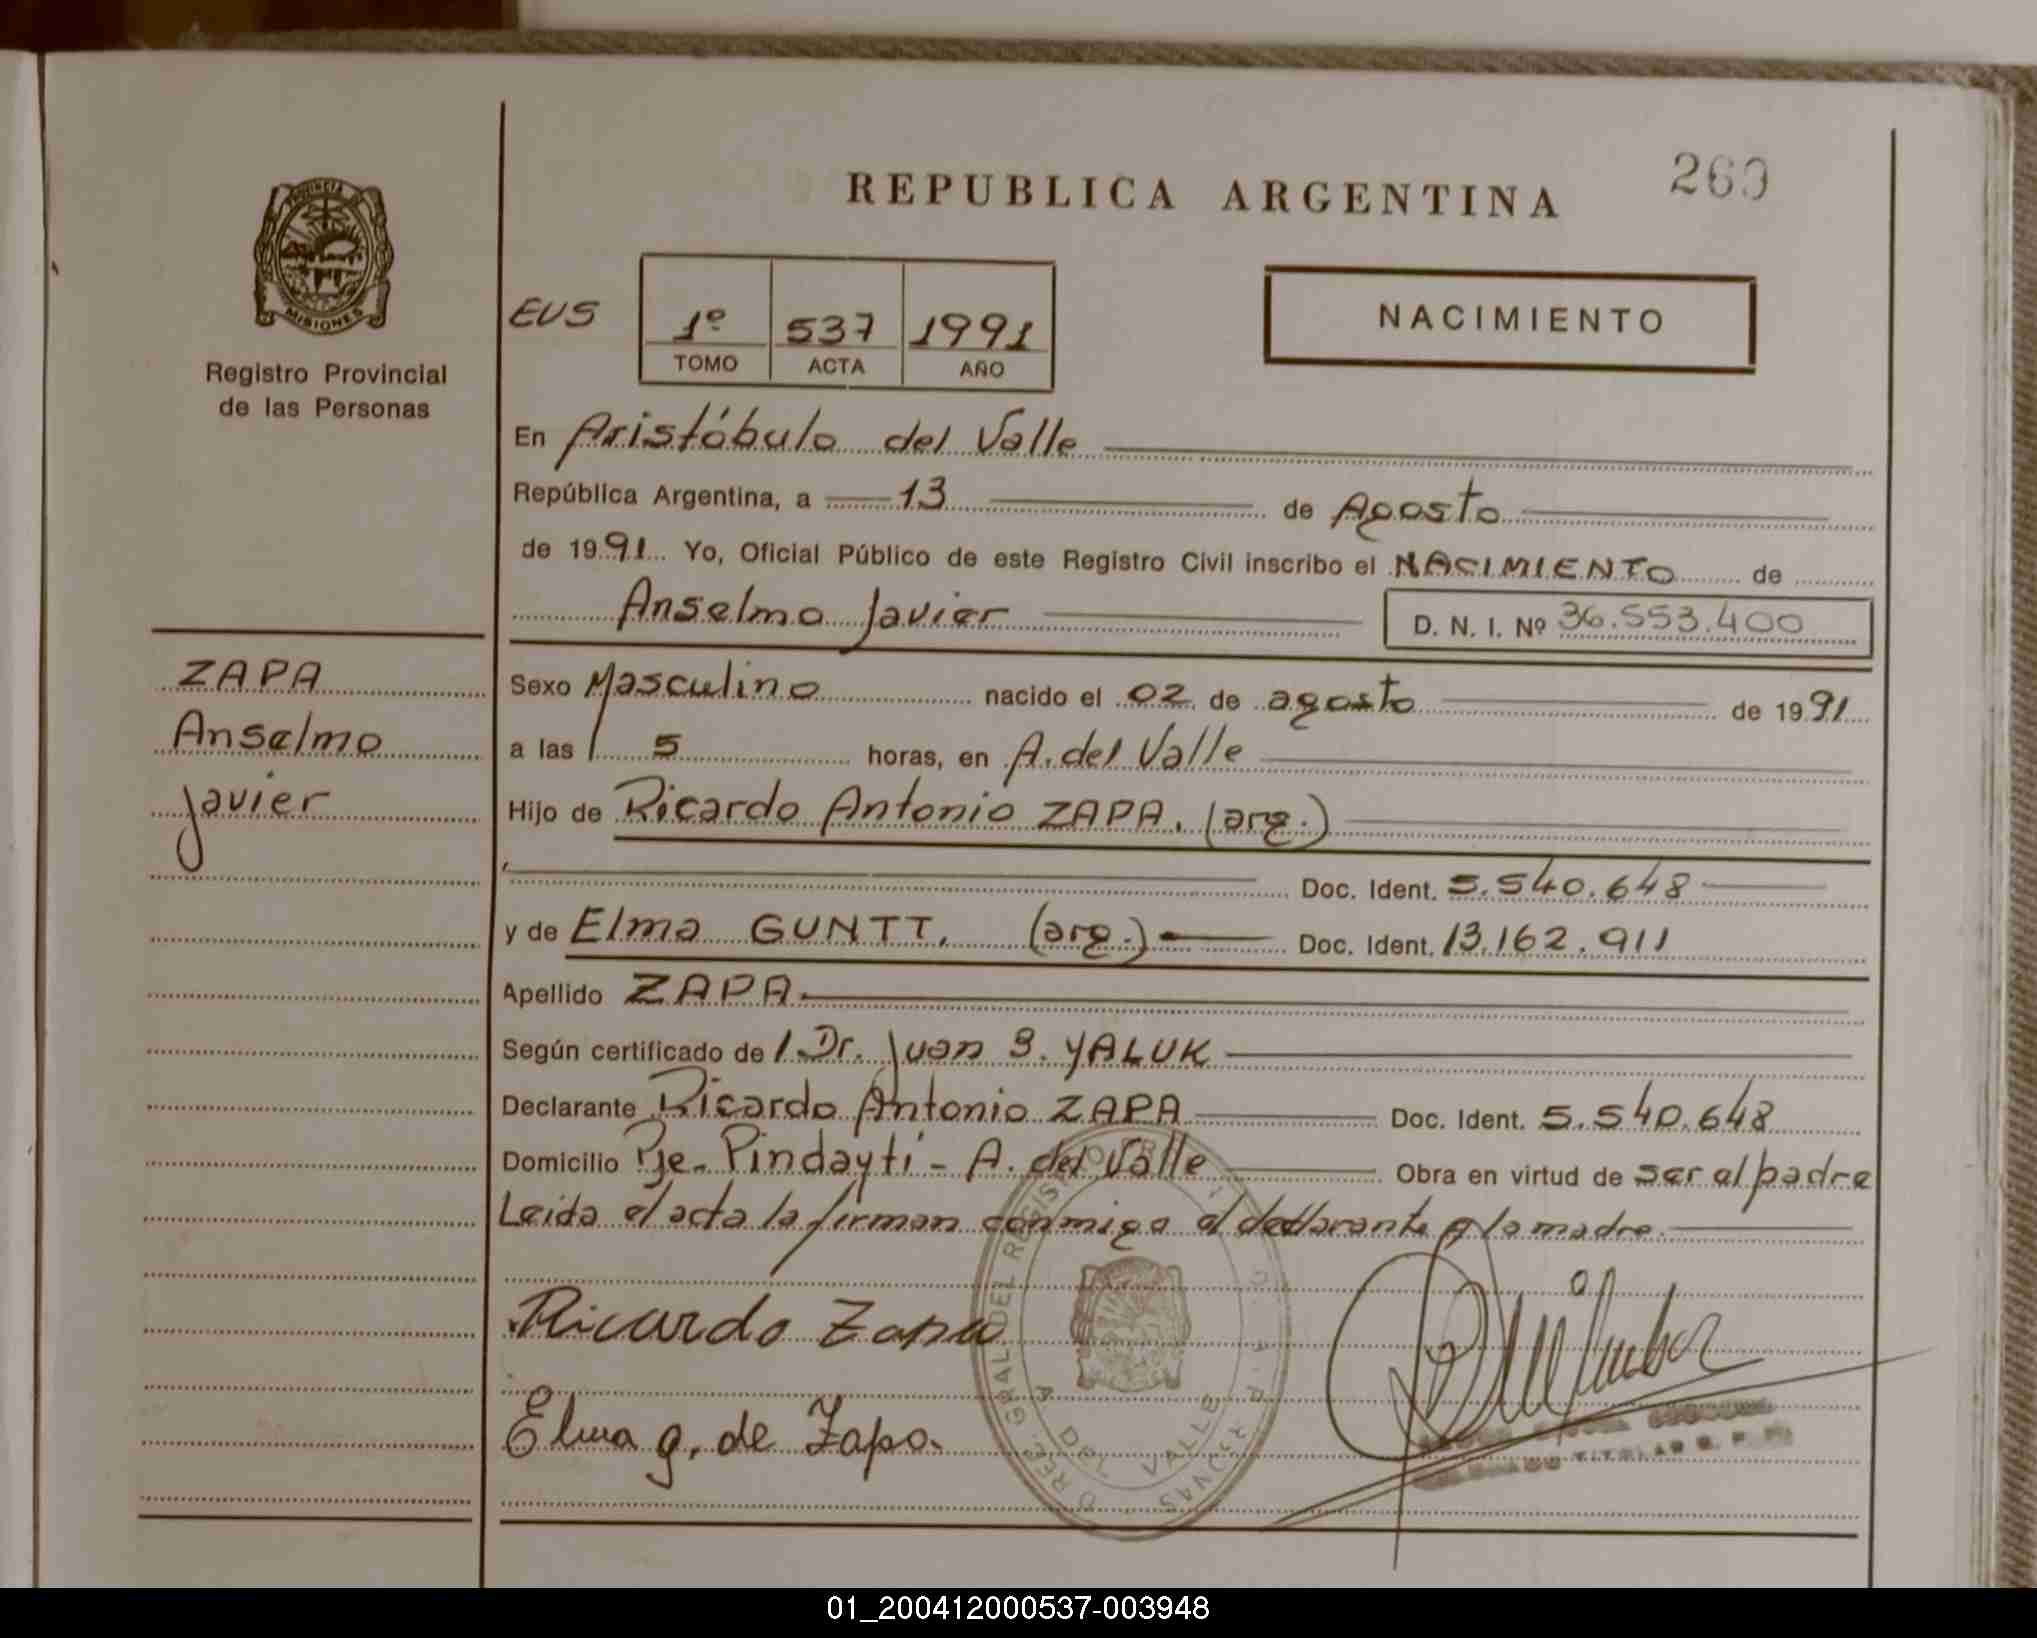 REPUBLICA ARGENTINA
260
PROVINCIA DE MISIONES
Registro Provincial
de las Personas
EUS
1º 537 1991
TOMO ACTA AÑO
NACIMIENTO
En Aristóbulo del Valle
República Argentina, a 13 de Agosto
de 1991 Yo, Oficial Público de este Registro Civil inscribo el NACIMIENTO de
Anselmo Javier D. N. I. Nº 36.553.400
ZAPA
Anselmo
Javier
Sexo Masculino nacido el 02 de agosto de 1991
a las 5 horas, en A. del Valle
Hijo de Ricardo Antonio ZAPA. (arg.)
Doc. Ident. 5.540.648
y de Elma GUNTT. (arg.) Doc. Ident. 13.162.911
Apellido ZAPA
Según certificado de Dr. Juan B. YALUK
Declarante Ricardo Antonio ZAPA Doc. Ident. 5.540.648
Domicilio Pje. Pindaytí - A. del Valle Obra en virtud de ser el padre
Leida el acta la firman conmigo el declarante y la madre.
Ricardo Zapa
Elma g. de Zapa.
A DEL VALLE
TITULAR R. P. P.
01_200412000537-003948